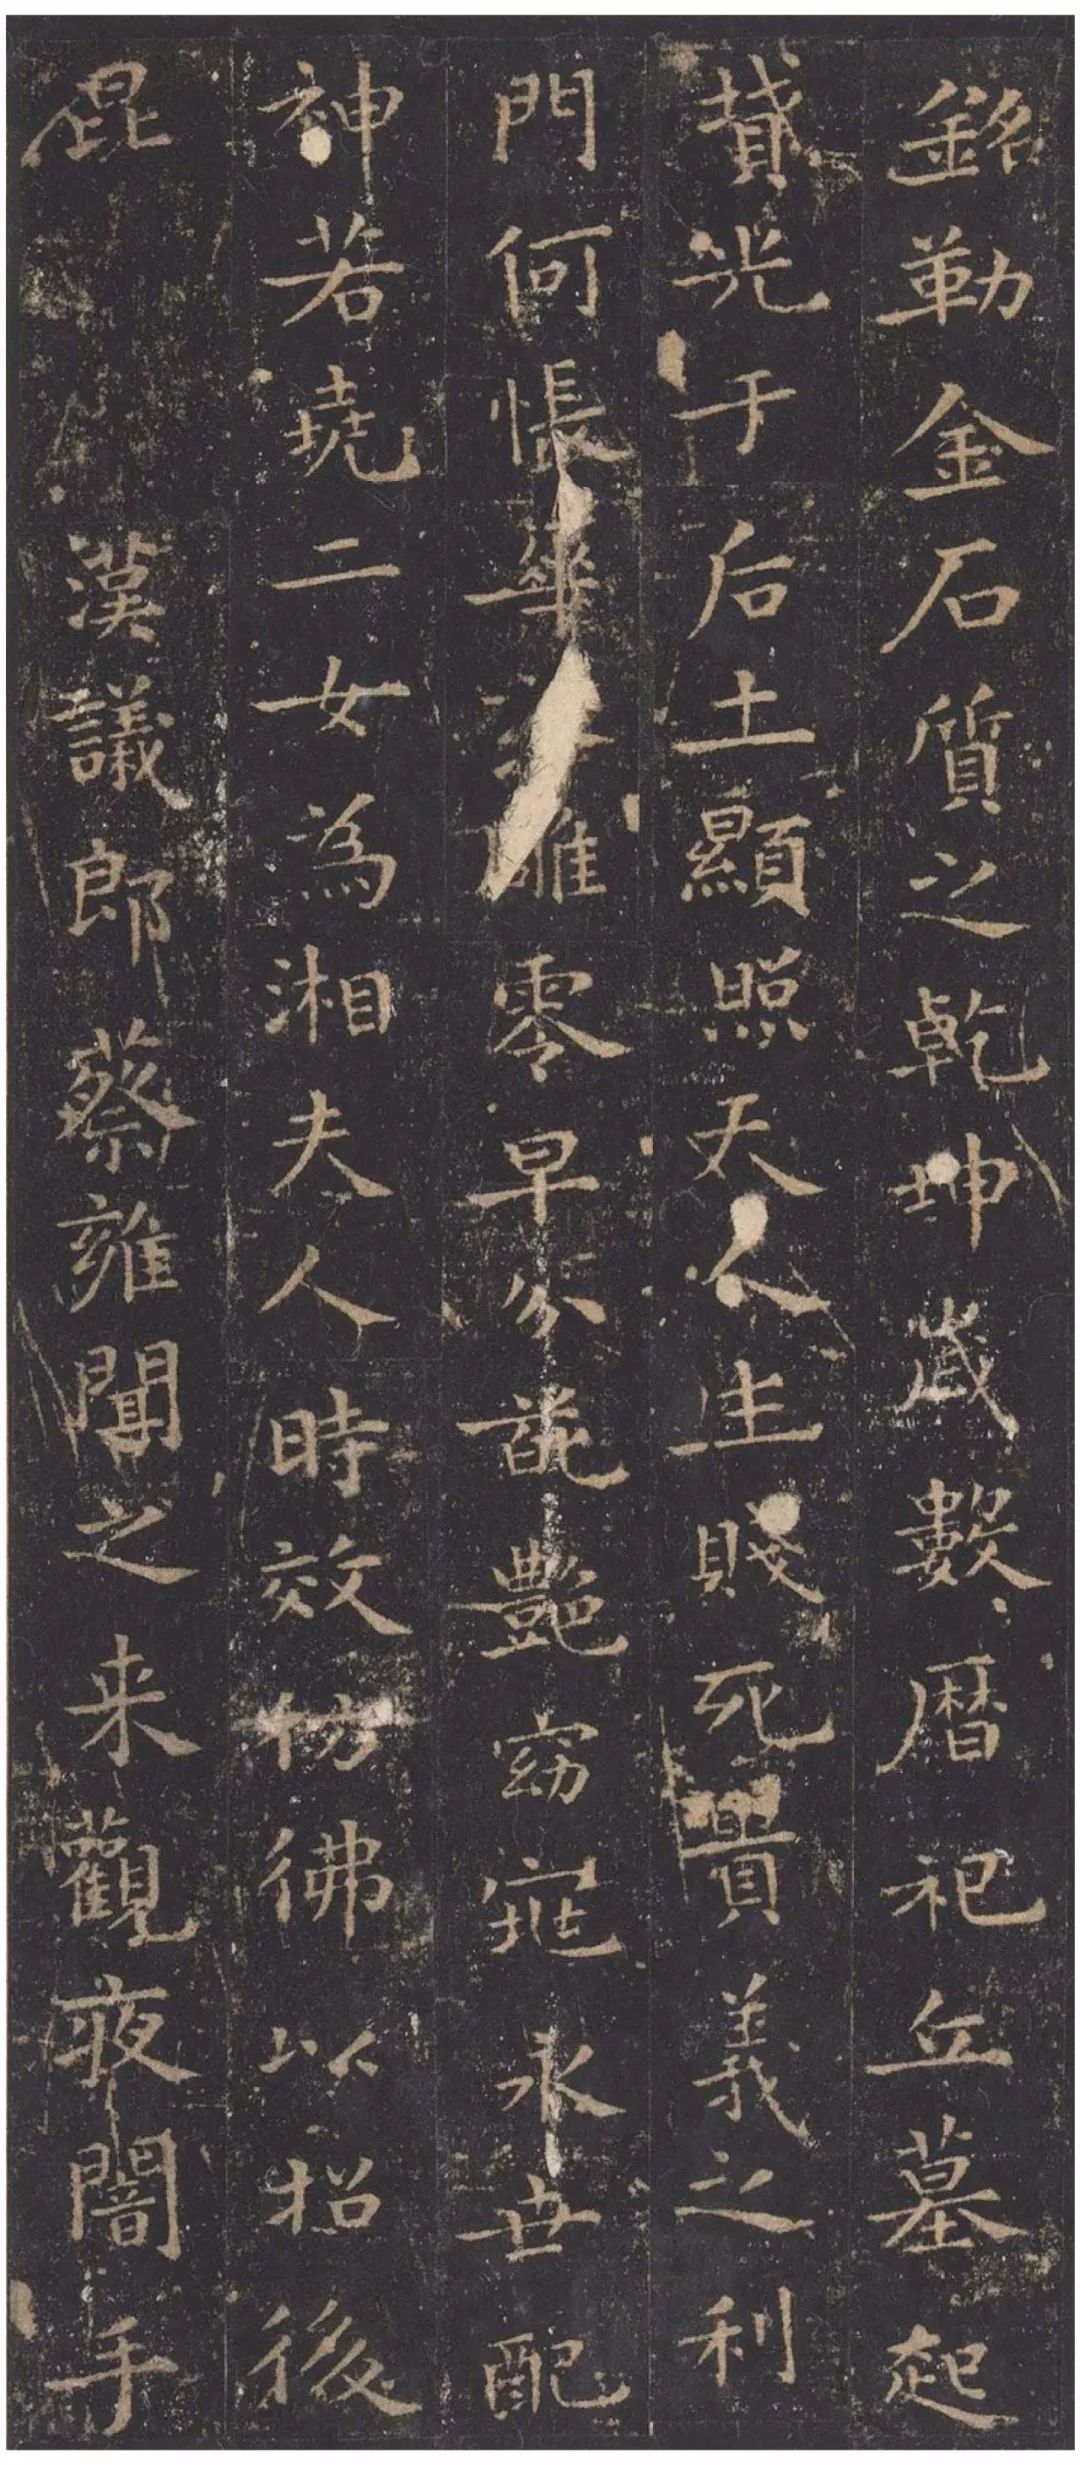 銘勒金石質之乾坤歲數暦祀丘墓起
墳光于后土顯照天人生賤死貴義之利
門何悵華雕零早分葩艷窈窕永世配
神若堯二女為湘夫人時效彷彿以招後
昆 漢議郎蔡雍聞之来觀夜闇手